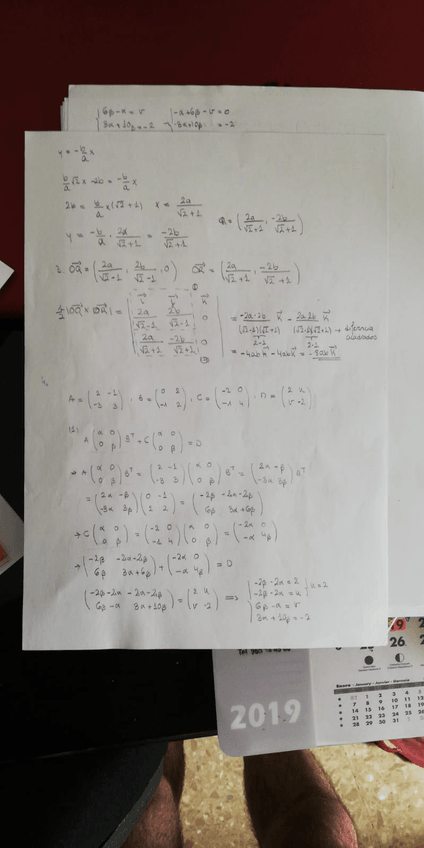 6β - α = v   -α + 6β - v = 0
8α + 10β = -2   -8α + 10β = -2
y = -b/a x
b/a √2 x - 2b = -b/a x
2b = b/a x (√2 + 1)   x = 2a/(√2+1)
y = -b/a · 2a/(√2+1) = -2b/(√2+1)   R = (2a/(√2+1), -2b/(√2+1))
3. OQ = (2a/(√2-1), 2b/(√2-1), 0)   OR = (2a/(√2+1), -2b/(√2+1))
1/2 |OQ × OR| = | i j k ; 2a/(√2-1) 2b/(√2-1) 0 ; 2a/(√2+1) -2b/(√2+1) 0 | = -2a·2b/((√2-1)(√2+1)) k - 2a·2b/((√2-1)(√2+1)) k → diferencia cuadrados
2-1   2-1
= -4ab k - 4ab k = -8ab k
4.
A = (2 -1; -3 3), B = (0 2; -1 2), C = (-2 0; -1 4), D = (2 u; v -2)
A (α 0; 0 β) Bᵀ + C (α 0; 0 β) = D
* A (α 0; 0 β) Bᵀ = (2 -1; -3 3) (α 0; 0 β) Bᵀ = (2α -β; -3α 3β) Bᵀ
= (2α -β; -3α 3β) (0 -1; 2 2) = (-2β -2α-2β; 6β 3α+6β)
→ C (α 0; 0 β) = (-2 0; -1 4) (α 0; 0 β) = (-2α 0; -α 4β)
→ (-2β -2α-2β; 6β 3α+6β) + (-2α 0; -α 4β) = D
(-2β-2α -2α-2β; 6β-α 3α+10β) = (2 u; v -2) ⟹ -2β-2α = 2
-2β-2α = u   u=2
6β-α = v
3α+10β = -2
2019
Enero - January - Janvier - Januar
1 2 3 4 5 6
7 8 9 10 11 12 13
14 15 16 17 18 19 20
21 22 23 24 25 26 27
28 29 30 31
26